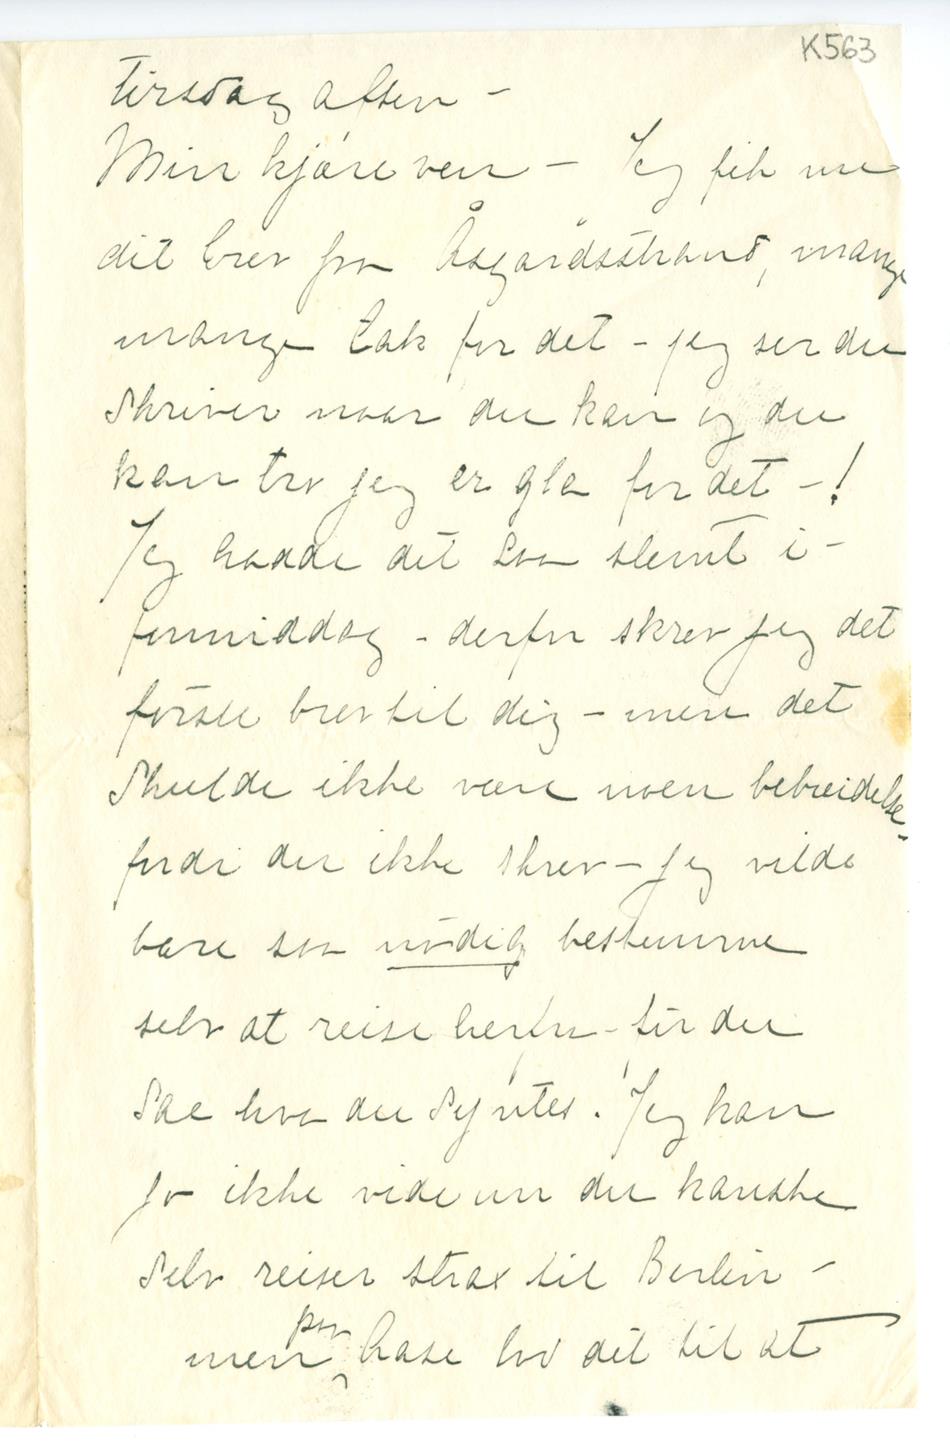 K563
Tirsdag aften –
Min kjære ven – Jeg fik nu
dit brev fra Åsgårdsstrand, mange
mange tak for det – jeg ser du
skriver naar du kan og du
kan tro jeg er gla for det – !
Jeg hadde det saa slemt i –
formiddag – derfor skrev jeg det
første brev til dig – men det
skulde ikke være noen bebreidelse –
fordi du ikke skrev – jeg vilde
bare saa nødig bestemme
selv at reise herfra – før du
sae hva du syntes. Jeg kan
jo ikke vide om du kanske
selv reiser strax til Berlin –
men paa lod det til at